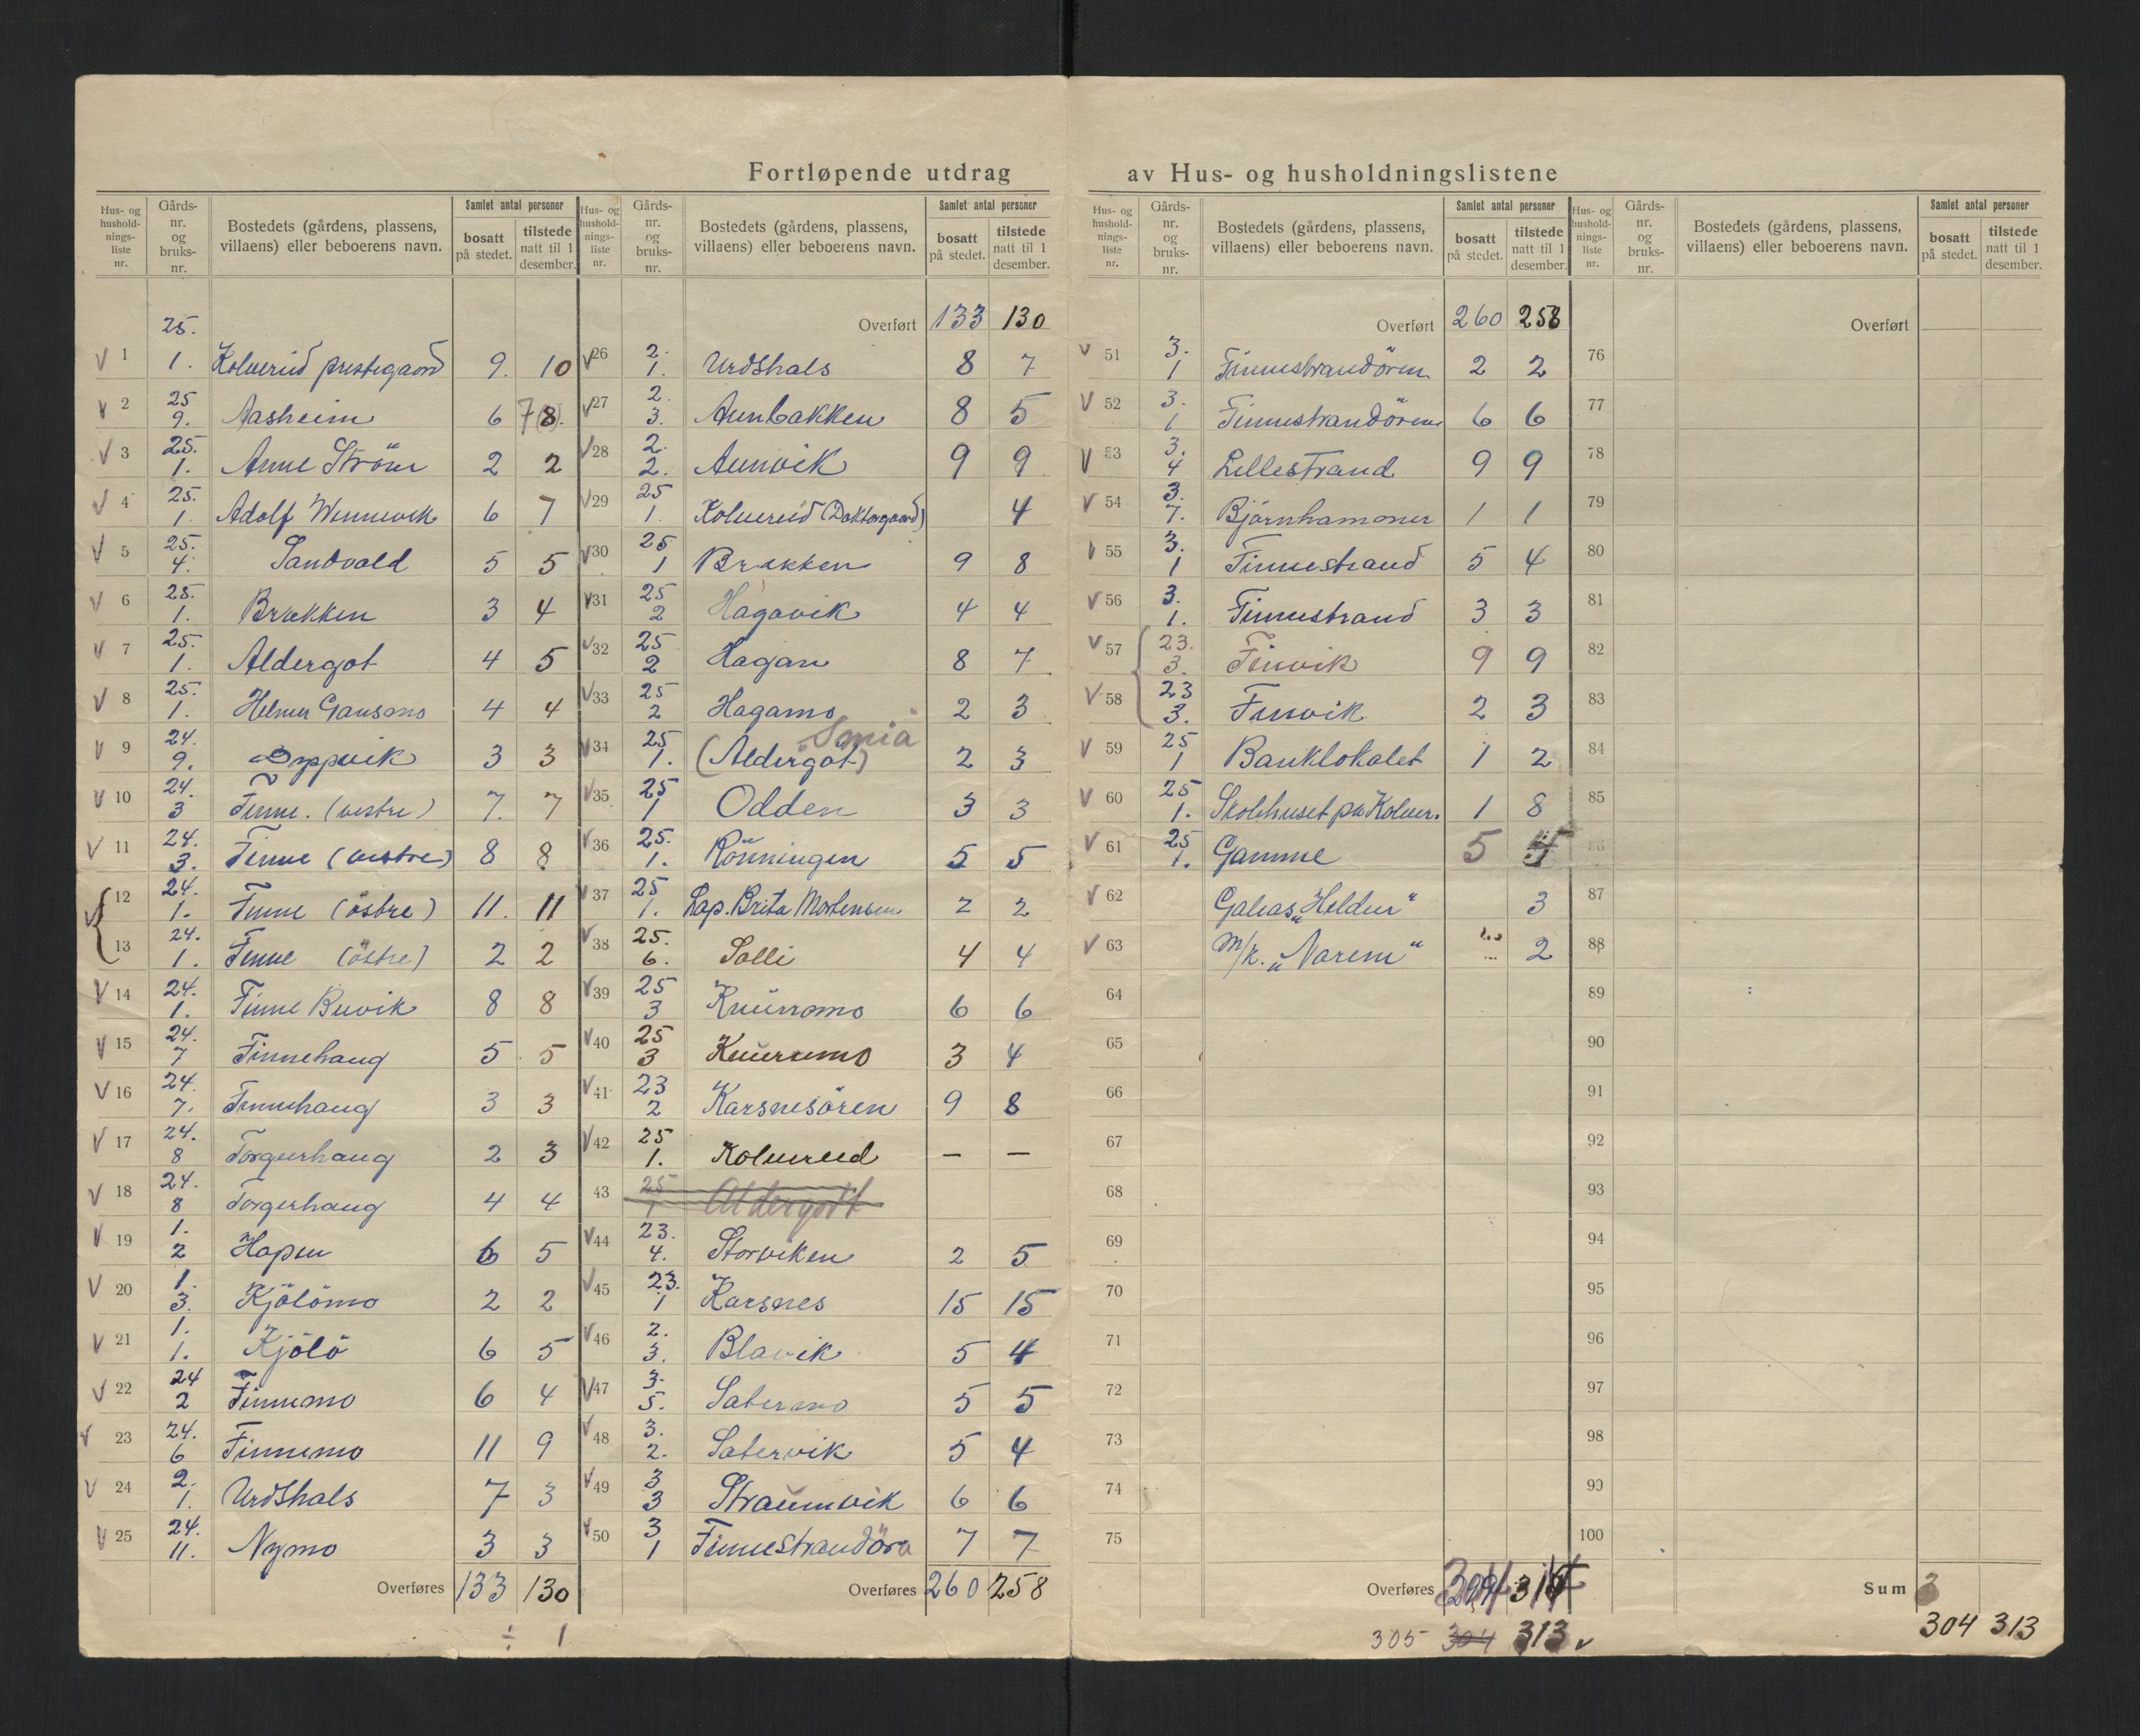 Fortløpende utdrag av Hus- og husholdningslistene
Hus- og hushold-nings-liste nr. Gårds-nr. og bruks-nr. Bostedets (gårdens, plassens, villaens) eller beboerens navn. Samlet antal personer bosatt på stedet. tilstede natt til 1 desember.
25.
1 1. Kolvereid prestegaard 9. 10
2 25 9. Aasheim 6 7 (8).
3 25. 1. Anne Ström 2 2
4 25. 1. Adolf Wennevik 6 7
5 25. 4. Sandvold 5 5
6 25. 1. Brækken 3 4
7 25. 1. Aldergot 4 5
8 25. 1. Helmer Gansmo 4 4
9 24. 9. Oppvik 3 3
10 24. 3 Finne. (vestre) 7. 7
11 24. 3. Finne (vestre) 8 8
12 24. 1. Finne (östre) 11. 11
13 24. 1. Finne (östre) 2 2
14 24. 1. Finne Buvik 8 8
15 24. 7 Finnehaug 5 5
16 24. 7. Finnehaug 3 3
17 24. 8 Torgerhaug 2 3
18 24. 8 Torgerhaug 4 4
19 1. 2 Hopen 6 5
20 1. 3. Kjölömo 2 2
21 1. 1. Kjölö 6 5
22 24 2 Finnemo 6 4
23 24. 6 Finnemo 11 9
24 2. 1. Urdshals 7 3
25 24. 11. Nymo 3 3
Overføres 133 130
÷ 1
Hus- og hushold-nings-liste nr. Gårds-nr. og bruks-nr. Bostedets (gårdens, plassens, villaens) eller beboerens navn. Samlet antal personer bosatt på stedet. tilstede natt til 1 desember.
Overført 133 130
26 2. 1. Urdshals 8 7
27 2. 3. Aunbakken 8 5
28 2. 2. Aunvik 9 9
29 25 1. Kolvereid (Doktorgaard) 4
30 25 1 Brækken 9 8
31 25 2 Hagavik 4 4
32 25 2 Hagan 8 7
33 25 2 Hagamo 2 3
34 25 1. (Aldergot) 2 3
35 25 1 Odden 3 3
36 25. 1. Rönningen 5 5
37 25 1. Lap. Brita Mortensen 2 2
38 25. 6. Solli 4 4
39 25 3 Knurromo 6 6
40 25 3 Knurrumo 3 4
41 23 2 Karsnesören 9 8
42 25 1. Kolvereid — —
43 25 1 Aldergodt
44 23. 4. Storviken 2 5
45 23. 1 Karsnes 15 15
46 2. 3. Blavik 5 4
47 3. 5. Satermo 5 5
48 3. 2. Satervik 5 4
49 3 3 Straumvik 6 6
50 3 1 Finnestrandöra 7 7
Overføres 260 258
Hus- og hushold-nings-liste nr. Gårds-nr. og bruks-nr. Bostedets (gårdens, plassens, villaens) eller beboerens navn. Samlet antal personer bosatt på stedet. tilstede natt til 1 desember.
Overført 260 258
51 3. 1 Finnestrandören 2 2
52 3. 1 Finnestrandören 6 6
53 3. 4 Lillestrand 9 9
54 3. 7. Björnhammer 1 1
55 3. 1 Finnestrand 5 4
56 3. 1. Finnestrand 3 3
57 23. 3. Finvik 9 9
58 23 3. Finvik 2 3
59 25 1 Banklokalet 1 2
60 25 1. Skolehuset på Kolver. 1 8
61 25 1. Gamme 5
62 Galeas „Heldur" 3
63 M/k. „Narem" 2
64
65
66
67
68
69
70
71
72
73
74
75
Overføres
305 304 313 v
Hus- og hushold-nings-liste nr. Gårds-nr. og bruks-nr. Bostedets (gårdens, plassens, villaens) eller beboerens navn. Samlet antal personer bosatt på stedet. tilstede natt til 1 desember.
Overført
76
77
78
79
80
81
82
83
84
85
86
87
88
89
90
91
92
93
94
95
96
97
98
99
100
Sum
304 313